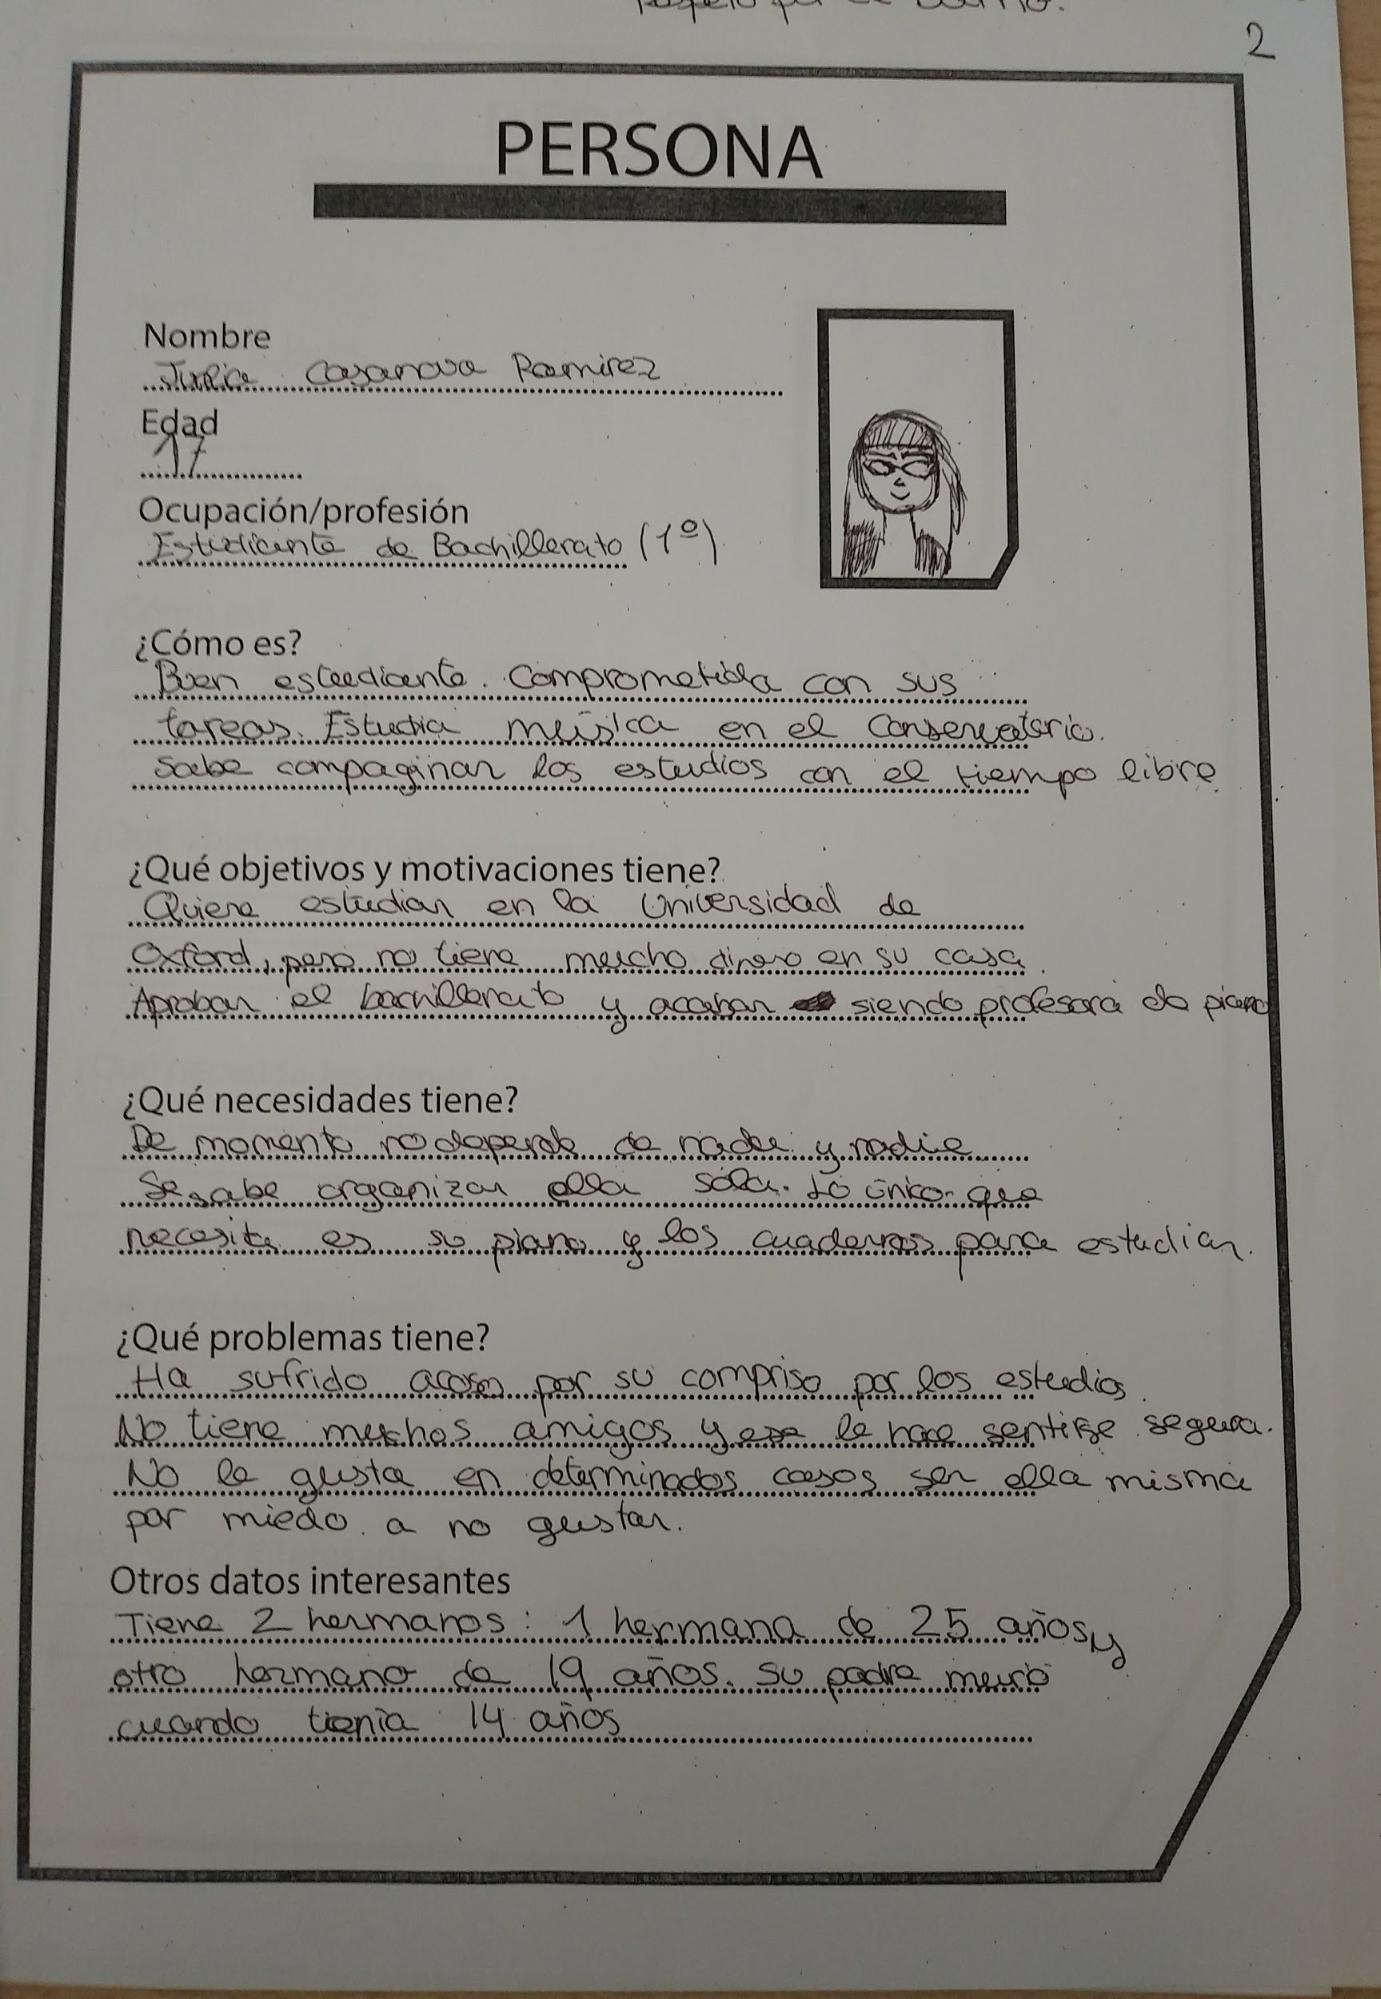 2
PERSONA
Nombre
Julia Casanova Ramirez
Edad
17
Ocupación/profesión
Estudiante de Bachillerato (1º)
¿Cómo es?
Buen estudiante. Comprometida con sus
tareas. Estudia música en el Conservatorio.
Sabe compaginar los estudios con el tiempo libre.
¿Qué objetivos y motivaciones tiene?
Quiere estudiar en la Universidad de
Oxford, pero no tiene mucho dinero en su casa.
Aprobar el bachillerato y acabar siendo profesora de piano
¿Qué necesidades tiene?
De momento no depende de nadie y nadie
Se sabe organizar ella sola. Lo único que
necesita es su piano y los cuadernos para estudiar.
¿Qué problemas tiene?
Ha sufrido acoso por su compriso por los estudios.
No tiene muchos amigos y eso le hace sentirse segura.
No le gusta en determinados casos ser ella misma
por miedo a no gustar.
Otros datos interesantes
Tiene 2 hermanos: 1 hermana de 25 años y
otro hermano de 19 años. Su padre murió
cuando tienia 14 años